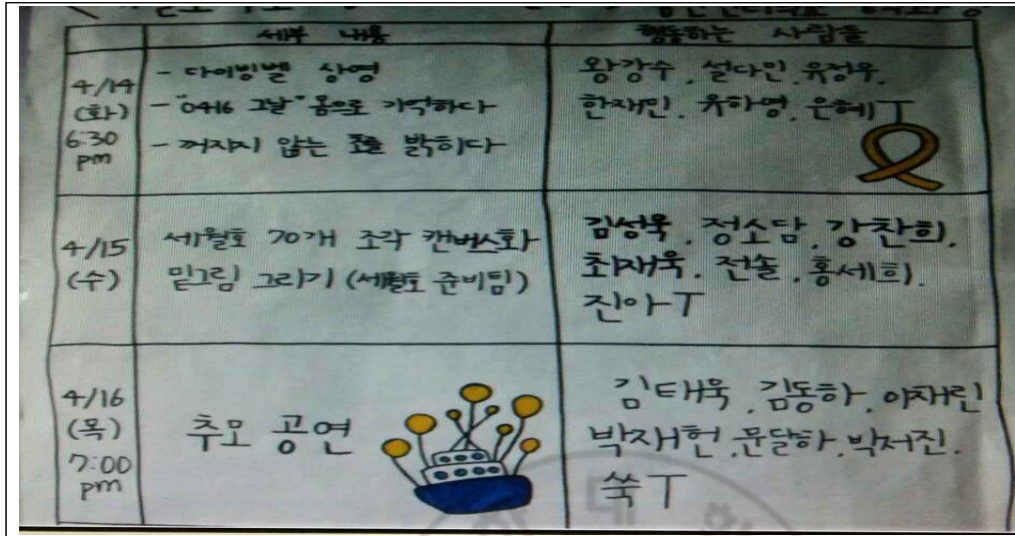 세부 내용
행동하는 사람들
4/14
(화)
6:30
pm
- 다이빙벨 상영
- "0416 그날" 몸으로 기억하다
- 꺼지지 않는 촛불 밝히다
왕강수, 설다인, 유정우,
한재민, 유하영, 은혜T
4/15
(수)
세월호 70개 조각 캔버스화
밑그림 그리기 (세월호 준비팀)
김성욱, 정소담, 강찬희,
최재욱, 전솔, 홍세희,
진아T
4/16
(목)
7:00
pm
추모 공연
김태욱, 김동하, 이재린
박재헌, 문달하, 박서진,
쑥T